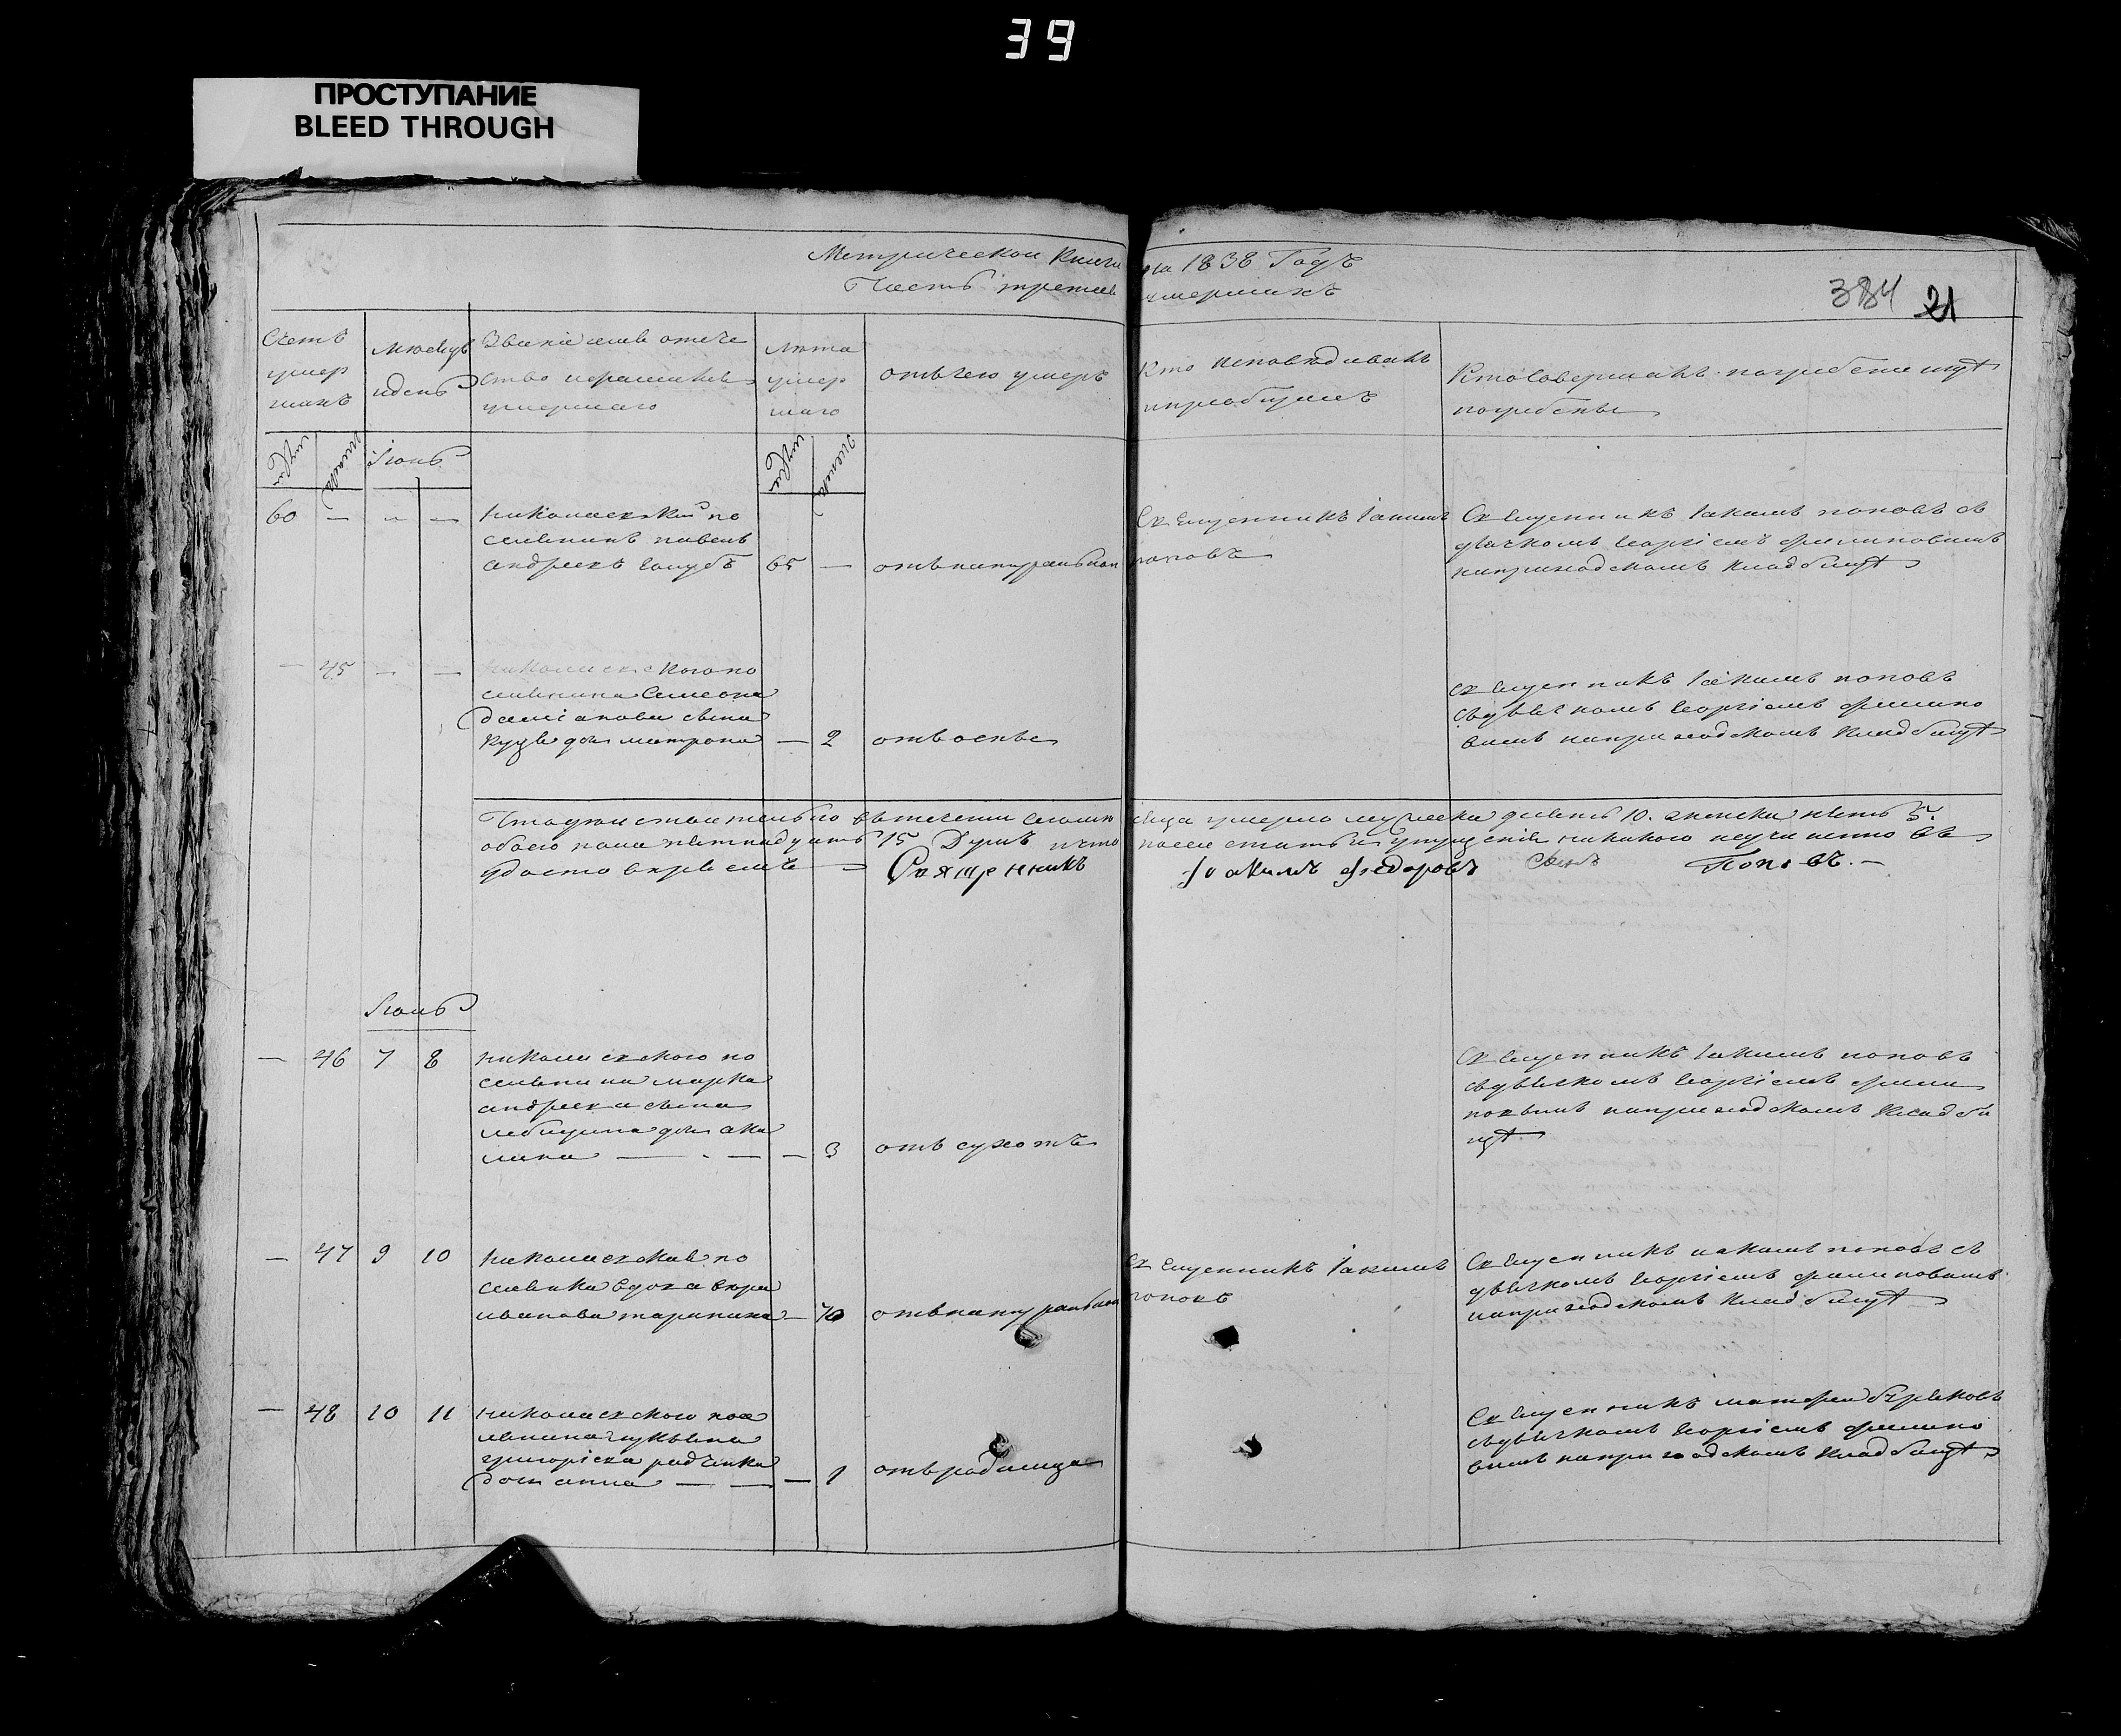 39
ПРОСТУПАНИЕ
BLEED THROUGH
Метрической Книги на 1838 Годъ
Часть третья умершихъ
384 21
Счетъ умершихъ
мѣсяцъ и день
Званіе имя отечество и прозвище умершаго
Лѣта умершаго
отъ чего умеръ
Кто исповѣдывалъ и приобщалъ
Кто Совершалъ погребеніе и гдѣ погребены
мужеск
женск
Іюнь
мужеск
женск
60 — — —
николаевский по
селянинъ павелъ
андреевъ голубъ 65 — отъ натуральной
Священникъ Іакимъ
поповъ
Священникъ Іакимъ поповъ съ
дьячкомъ Георгіемъ филиповымъ
на приходскомъ кладбищѣ
— 45 — —
николаевского по
селянина Симеона
даміанова сына
дочь матрона — 2 отъ оспы
Священникъ Іакимъ поповъ
съ дьячкомъ Георгіемъ филипо
вымъ на приходскомъ кладбищѣ
Что дѣйствительно въ течении сего мѣсяца умерло мужеска девять 10. женска пять 5.
обоего пола пятнадцать 15 Душъ и что после статьи упущенія никакого неучинено въ
Священникъ Іоакимъ Федоровъ сынъ Поповъ. —
Іюль
— 46 7 8
николаевского по
селянина марка
андреева сына
лебидина дочь аку
лина — — — 3 отъ сухотъ
Священникъ Іакимъ поповъ
съ дьячкомъ Георгіемъ фили
повымъ на приходскомъ кладби
щѣ
— 47 9 10
николаевская по
селянка вдова
иванова — 70 отъ натуральной
Священникъ Іакимъ
поповъ
Священникъ иакимъ поповъ съ
дьячкомъ Георгіемъ филиповымъ
на приходскомъ кладбищѣ
— 48 10 11
николаевского посе
лянина
григоріева радченка
дочь анна — — — 1 отъ родимца
Священникъ матфей
съ дьячкомъ Георгіемъ филипо
вымъ на приходскомъ кладбищѣ